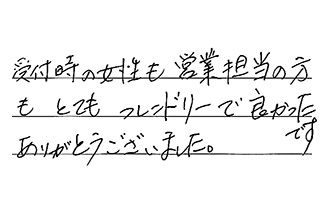 受付時の女性も営業担当の方
も とても フレンドリーで良かった
です
ありがとうございました。